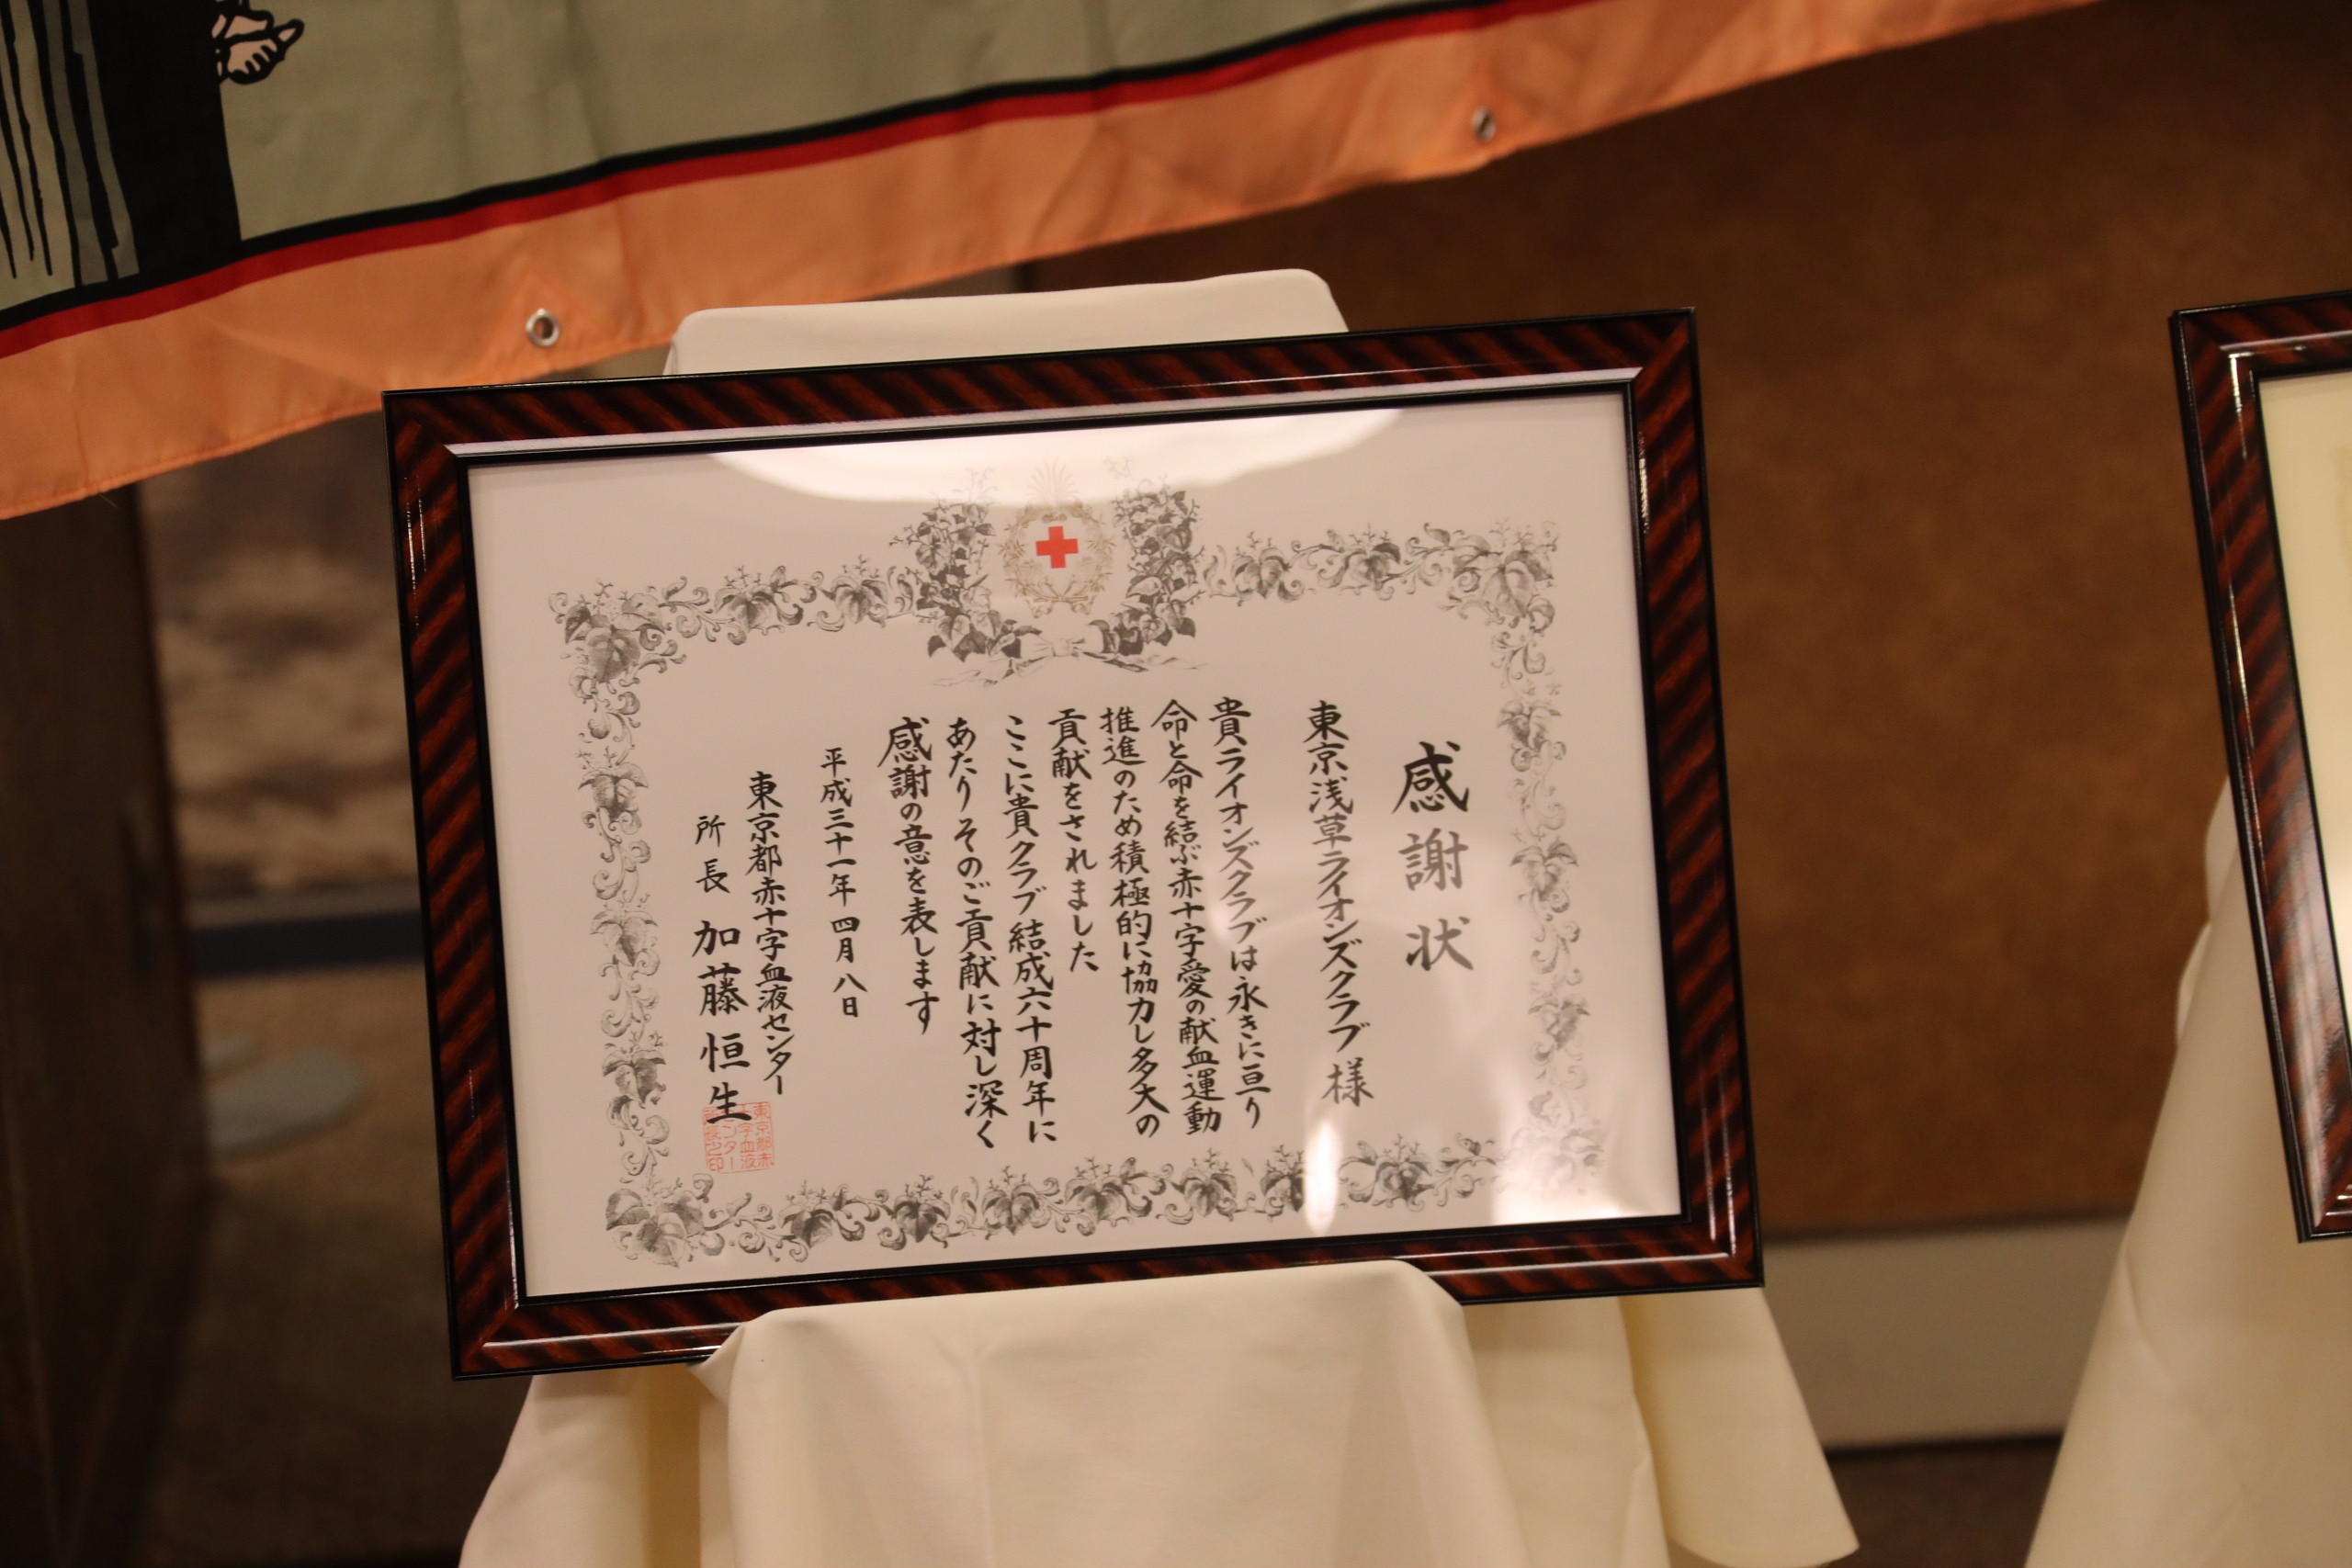 感謝状
東京浅草ライオンズクラブ様
貴ライオンズクラブは永きに亘り
命と命を結ぶ赤十字愛の献血運動
推進のため積極的に協力し多大の
貢献をされました
ここに貴クラブ結成六十周年に
あたりそのご貢献に対し深く
感謝の意を表します
平成三十一年四月八日
東京都赤十字血液センター
所長 加藤恒生